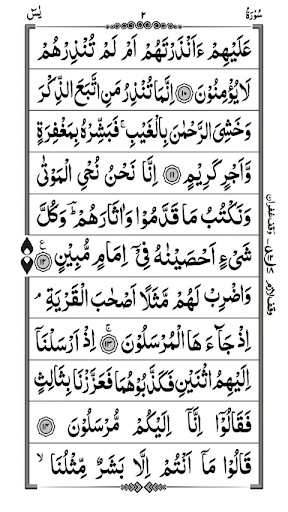 سُوْرَةُ ٢ يٰسٓ
عَلَيْهِمْ ءَاَنْذَرْتَهُمْ اَمْ لَمْ تُنْذِرْهُمْ
لَا يُؤْمِنُوْنَ ۝١٠ اِنَّمَا تُنْذِرُ مَنِ اتَّبَعَ الذِّكْرَ
وَخَشِيَ الرَّحْمٰنَ بِالْغَيْبِ ۚ فَبَشِّرْهُ بِمَغْفِرَةٍ
وَّاَجْرٍ كَرِيْمٍ ۝١١ اِنَّا نَحْنُ نُحْيِ الْمَوْتٰى
وَنَكْتُبُ مَا قَدَّمُوْا وَاٰثَارَهُمْ ؕ وَكُلَّ
شَيْءٍ اَحْصَيْنٰهُ فِيْٓ اِمَامٍ مُّبِيْنٍ ۝١٢
وَاضْرِبْ لَهُمْ مَّثَلًا اَصْحٰبَ الْقَرْيَةِ ۘ
اِذْ جَآءَهَا الْمُرْسَلُوْنَ ۝١٣ اِذْ اَرْسَلْنَآ
اِلَيْهِمُ اثْنَيْنِ فَكَذَّبُوْهُمَا فَعَزَّزْنَا بِثَالِثٍ
فَقَالُوْٓا اِنَّآ اِلَيْكُمْ مُّرْسَلُوْنَ ۝١٤
قَالُوْا مَآ اَنْتُمْ اِلَّا بَشَرٌ مِّثْلُنَا ۙ
وقف غفران
وقف لازم